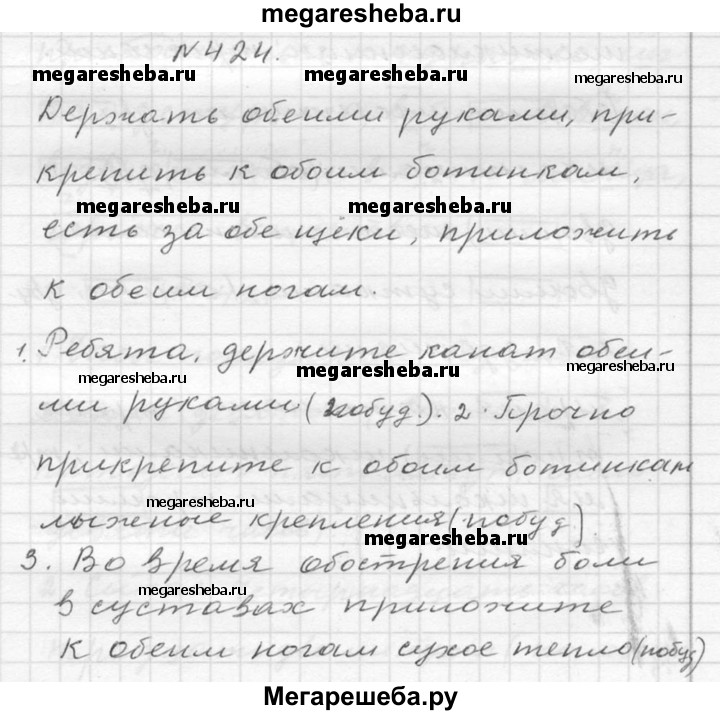 megaresheba.ru
N 424.
megaresheba.ru megaresheba.ru megaresheba.ru
Держать обеими руками, при-
крепить к обоим ботинкам,
megaresheba.ru megaresheba.ru
есть за обе щёки, приложить
к обеим ногам.
1. Ребята, держите канат обеи-
megaresheba.ru megaresheba.ru megaresheba.ru
ми руками (побуд.). 2. Прочно
прикрепите к обоим ботинкам
megaresheba.ru
лыжные крепления (побуд)
megaresheba.ru
3. Во время обострения боли
megaresheba.ru
в суставах приложите
к обеим ногам сухое тепло (побуд)
Мегарешеба.ру